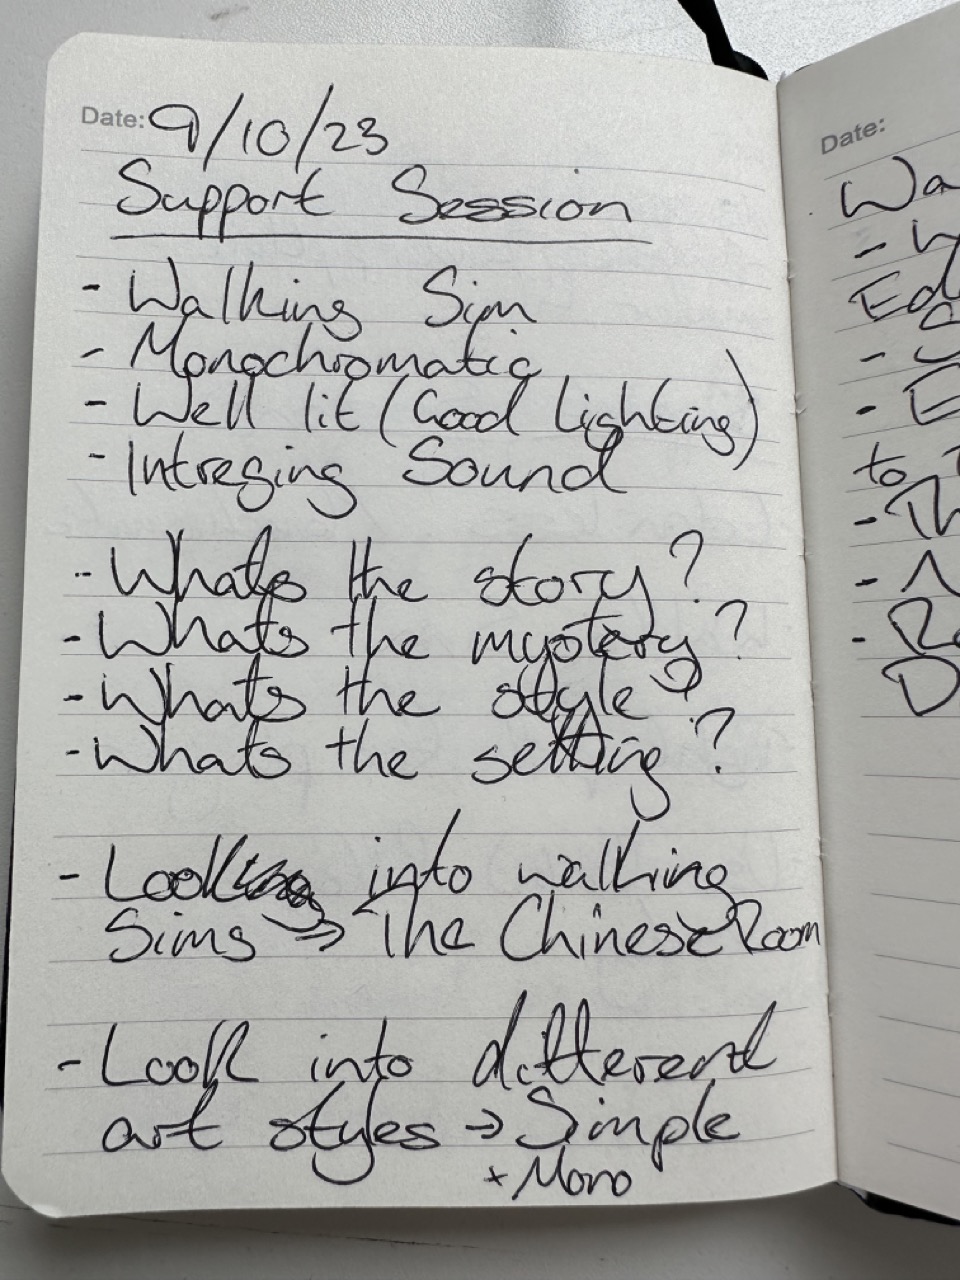 Date: 9/10/23
Support Session
- Walking Sim
- Monochromatic
- Well lit (Good Lighting)
- Intreging Sound
- Whats the story?
- Whats the mystery?
- Whats the style?
- Whats the setting?
- Look into walking
Sims → The Chinese Room
- Look into different
art styles → Simple
+ Mono
Date:
Wa
-
Ed
-
- E
to
- Th
-
-
D